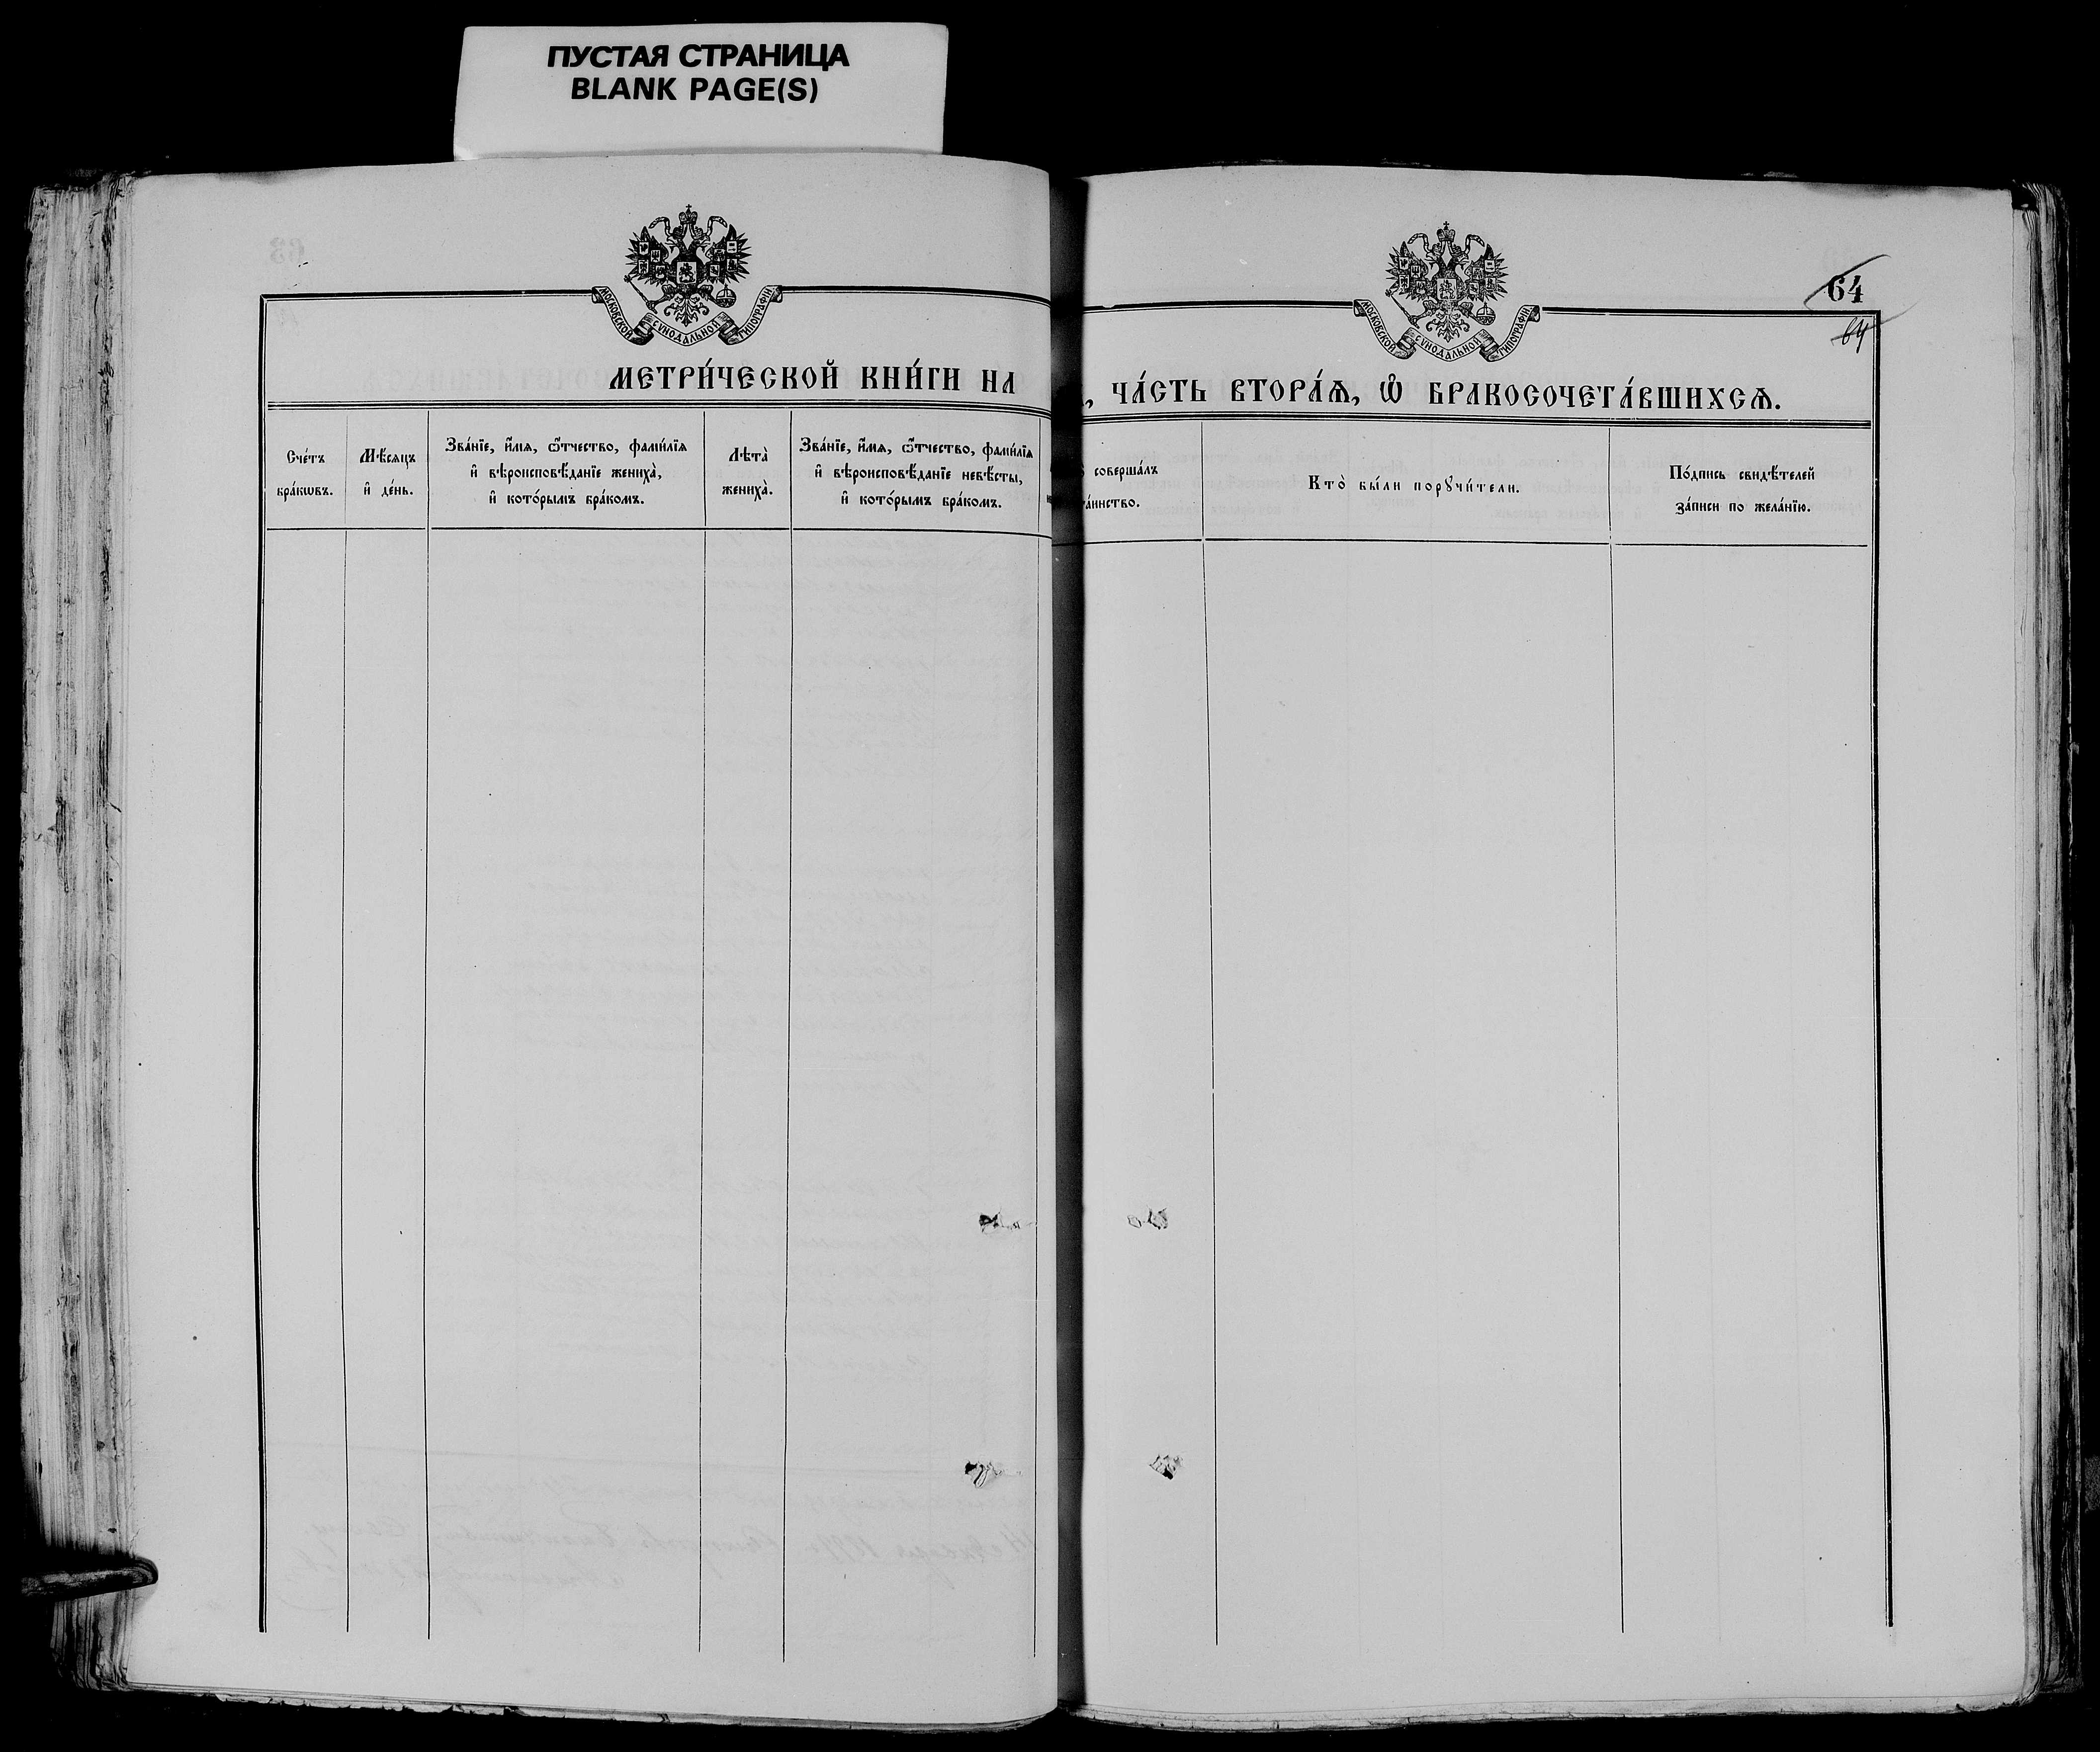 ПУСТАЯ СТРАНИЦА
BLANK PAGE(S)
МОСКОВСКОЙ СѴНОДАЛЬНОЙ ТИПОГРАФІИ
МЕТРИ́ЧЕСКОЙ КНИ́ГИ НА
Сче́тъ
бра́кѡвъ.
Мѣ́сяцъ
и҆ де́нь.
Зва́нїе, и҆́мѧ, ѻ҆́тчество, фами́лїя
и҆ вѣроисповѣ́данїе жениха̀,
и҆ кото́рымъ бра́комъ.
Лѣта̀
жениха̀.
Зва́нїе, и҆́мѧ, ѻ҆́тчество, фами́лїя
и҆ вѣроисповѣ́данїе невѣ́сты,
и҆ кото́рымъ бра́комъ.
64
64
МОСКОВСКОЙ СѴНОДАЛЬНОЙ ТИПОГРАФІИ
, ЧА́СТЬ ВТОРА́Ѧ, Ѽ БРАКОСОЧЕТА́ВШИХСѦ.
соверша́лъ
та́инство.
Кто̀ бы́ли порꙋчи́тели.
По́дпись свидѣ́телей
за́писи по жела́нїю.